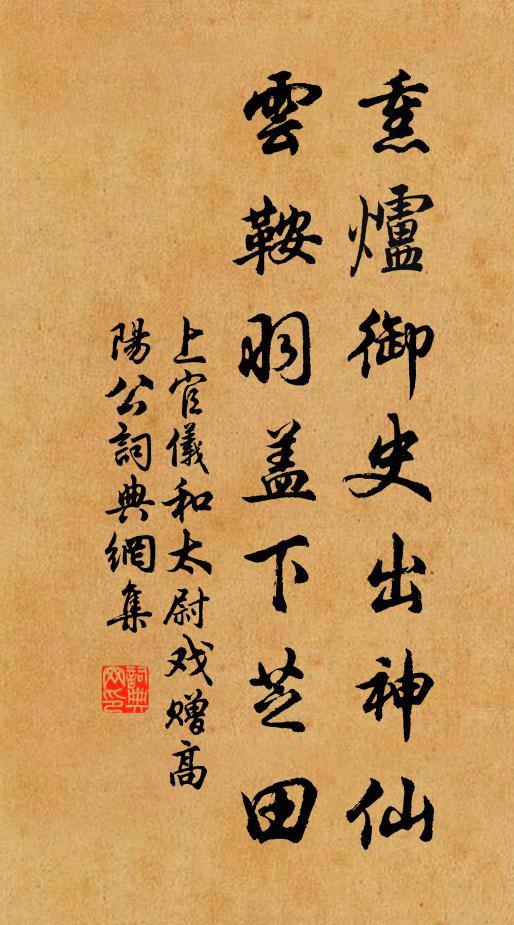 熏爐御史出神仙
雲鞍羽盖下芝田
上官儀和太尉戏赠高
陽公詞典網集
詞典
网印